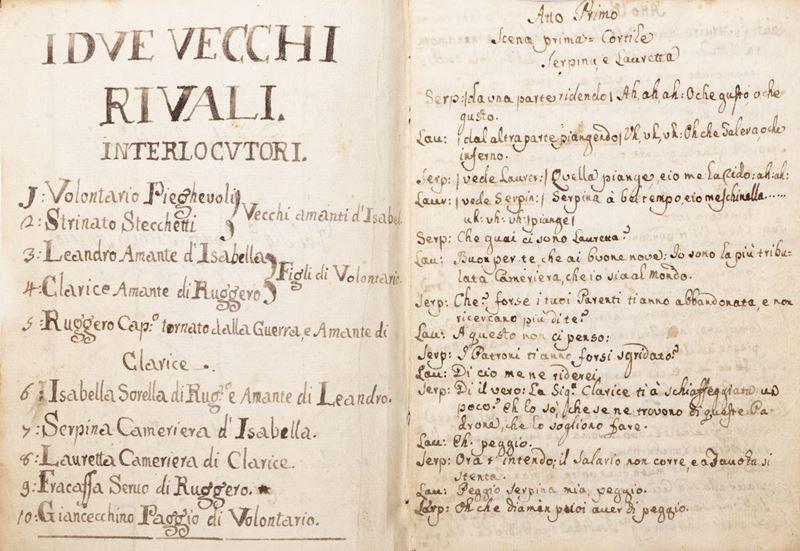 I DVE VECCHI
RIVALI.
INTERLOCVTORI.
1: Volontario Pieghevoli
2: Strinato Stecchetti
Vecchi amanti d'Isabel
3: Leandro Amante d'Isabella
4: Clarice Amante di Ruggero
Figli di Volontario
5: Ruggero Cap.º tornato dalla Guerra, e Amante di
Clarice
6: Isabella Sorella di Rug.º e Amante di Leandro.
7: Serpina Cameriera d'Isabella.
8: Lauretta Cameriera di Clarice.
9: Fracassa Seruo di Ruggero.
10: Giancecchino Paggio di Volontario.
Atto Primo
Scena prima = Cortile
Serpina, e Lauretta
Serp: | da una parte ridendo | Ah, ah, ah: O che gusto, o che
gusto.
Lau: | dal altra parte piangendo | Vh, vh, vh: Oh che Galera, o che
inferno.
Serp: | vede Laurer: | Quella piange, e io me la rido: ah: ah:
Laur: | vede Serpin: | Serpina à bel tempo, e io meschinalla......
uh: uh: uh: | piange |
Serp: Che guai ci sono Lauretta?
Lau: Buon per te che ai buone nove: Io sono la più tribu-
lata Cameriera, che io sia al Mondo.
Serp: Che? forse i tuoi Parenti ti anno abbandonata, e non
ricercano più di te?
Lau: A questo non ci penso:
Serp: I Patroni ti anno forsi sgridato?
Lau: Di cio me ne riderei
Serp: Di il vero: La Sig.ª Clarice ti à schiaffeggiata un
poco? Eh lo so, che se ne trovono di queste Pa-
drone, che lo sogliono fare.
Lau: Eh: peggio.
Serp: Ora t'intendo; il Salario non corre, e a Tavola si
stenta.
Lau: Peggio Serpina mia, peggio.
Serp: Oh che diamin puoi aver di peggio.